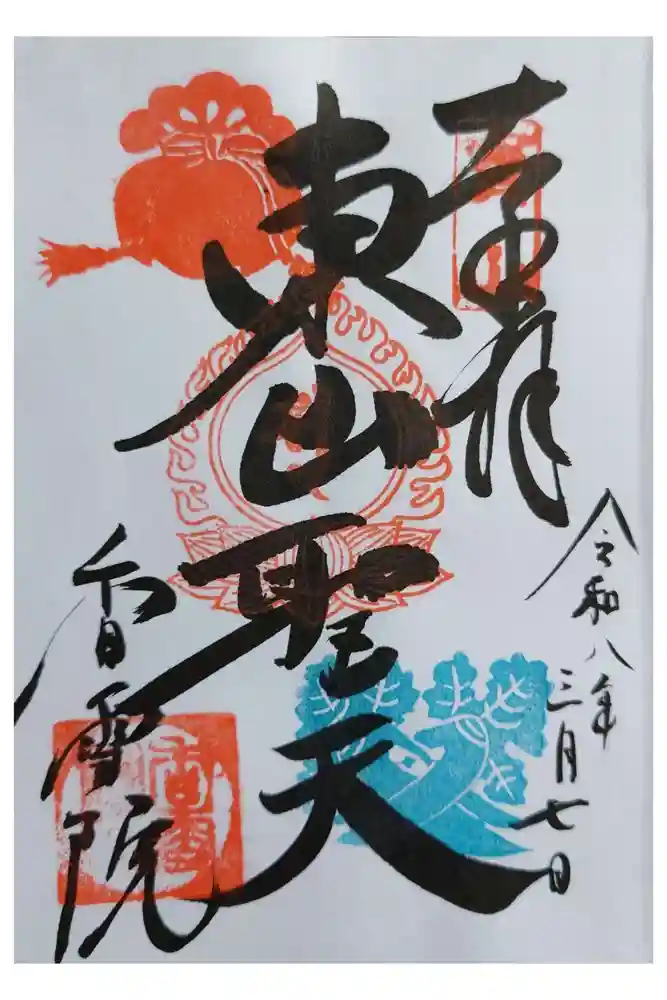 奉拝
令和八年
三月七日
東山聖天
香雪院